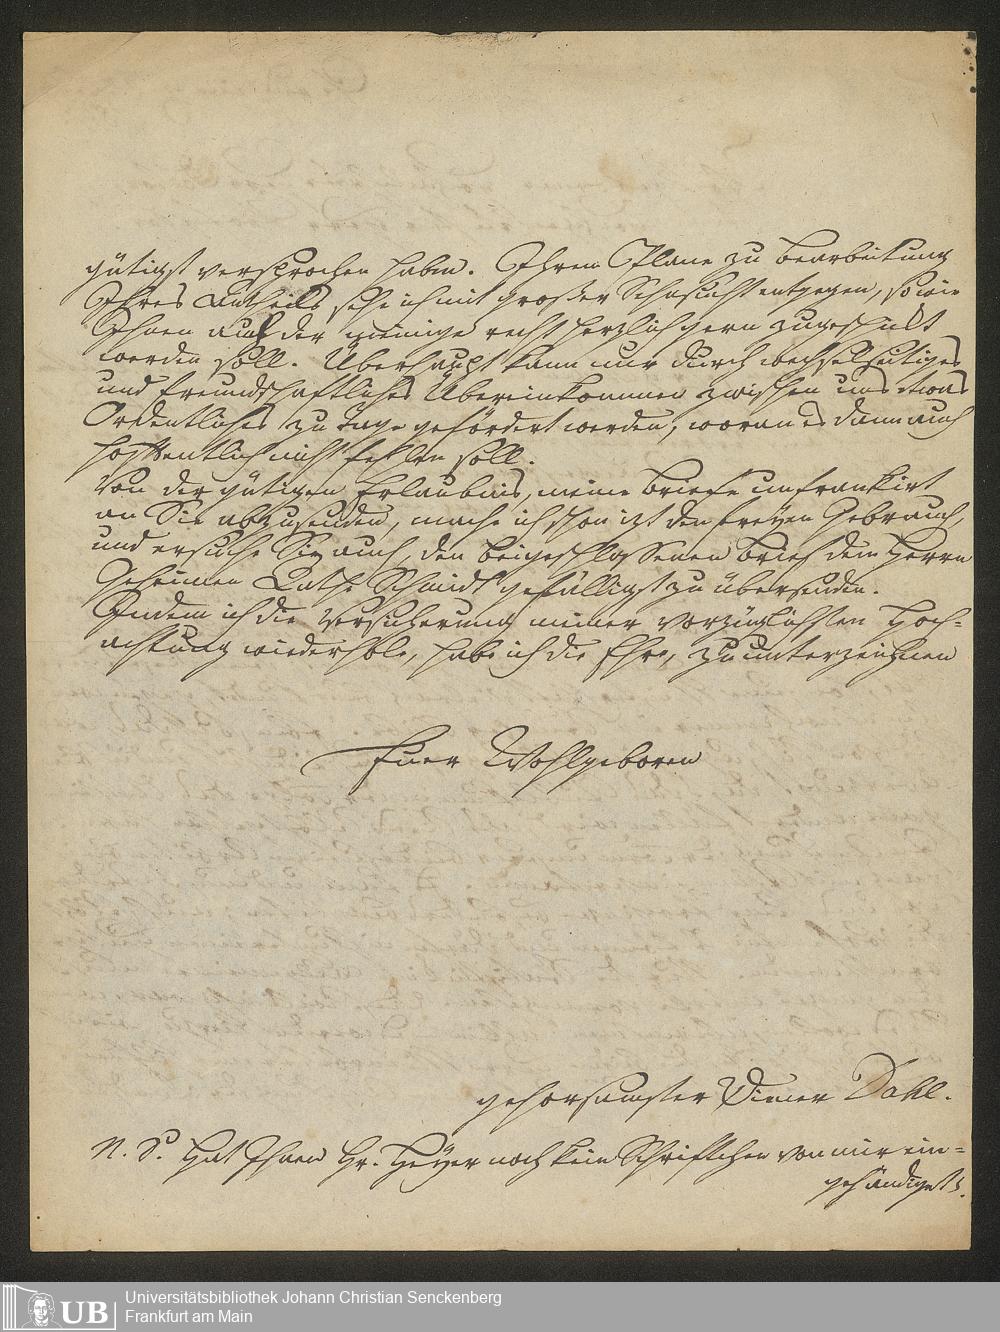 gütigst versprochen haben. Ihrem Plane zu Bearbeitung
Ihres Antheils sehe ich mit großer Sehnsucht entgegen, so wie
Ihnen auch der meinige recht herzlich gern zugeschickt
werden soll. Überhaupt kann nur durch wechselseitiges
und freundschaftliches Übereinkommen zwischen uns etwas
Ordentliches zu Tage gefördert werden, woran es dann auch
hoffentlich nicht fehlen soll.
Von der gütigen Erlaubnis, meine Briefe unfrankirt
an Sie abzusenden, mache ich schon izt den freyen Gebrauch,
und ersuche Sie auch, den beigeschlossenen Brief dem Herrn
Geheimen Rathe Schmidt gefälligst zu übersenden.
Indem ich die Versicherung meiner vorzüglichsten Hoch=
achtung wiederhole, habe ich die Ehre, zu unterzeichnen
Euer Wohlgeboren
gehorsamster Diener Dahl.
N. S. Hat Ihnen Hr. Heyer noch kein Schriftchen von mir ein=
gehändigt?
UB
Universitätsbibliothek Johann Christian Senckenberg
Frankfurt am Main